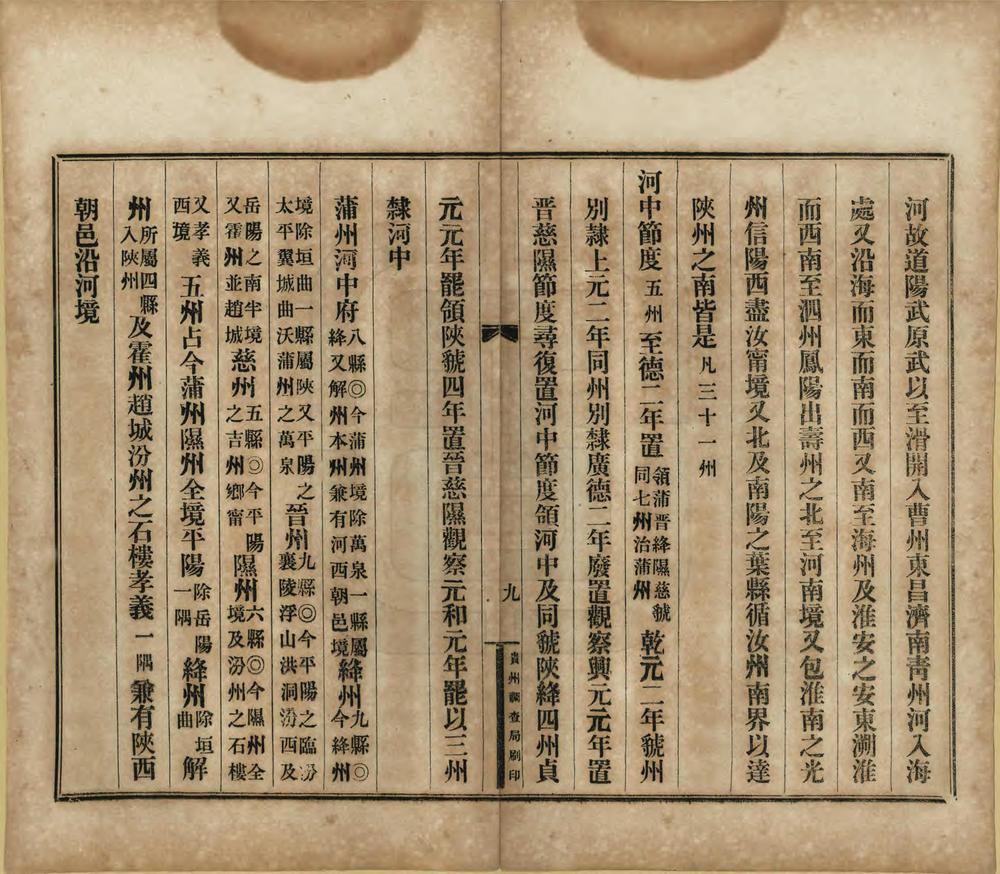 河故道陽武原武以至滑開入曹州東昌濟南青州河入海
處又沿海而東而南而西又南至海州及淮安之安東溯淮
而西南至泗州鳳陽出壽州之北至河南境又包淮南之光
州信陽西盡汝甯境又北及南陽之葉縣循汝州南界以達
陝州之南皆是凡三十一州
河中節度五州至德二年置領蒲晉絳隰慈虢同七州治蒲州乾元二年虢州
別隸上元二年同州別隸廣德二年廢置觀察興元元年置
晉慈隰節度尋復置河中節度領河中及同虢陝絳四州貞
九
貴州調查局刷印
元元年罷領陝虢四年置晉慈隰觀察元和元年罷以三州
隸河中
蒲州河中府八縣◎今蒲州境除萬泉一縣屬絳又解州本州兼有河西朝邑境絳州九縣◎今絳州
境除垣曲一縣屬陝又平陽之太平翼城曲沃蒲州之萬泉晉州九縣◎今平陽之臨汾襄陵浮山洪洞汾西及
岳陽之南半境又霍州並趙城慈州五縣◎今平陽之吉州鄉甯隰州六縣◎今隰州全境及汾州之石樓
又孝義西境五州占今蒲州隰州全境平陽除岳陽一隅絳州除垣曲解
州所屬四縣入陝州及霍州趙城汾州之石樓孝義一隅兼有陝西
朝邑沿河境